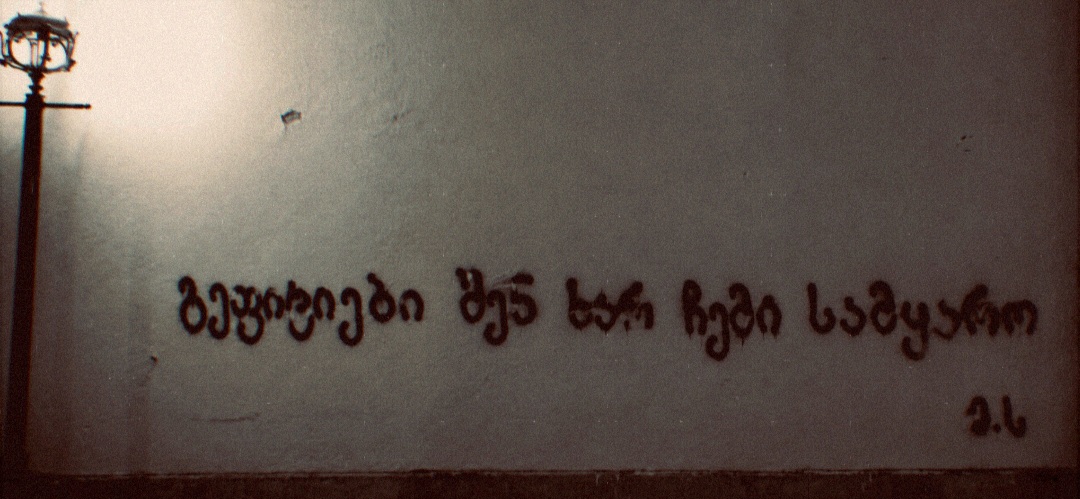 გეფიციები შენ ხარ ჩემი სამყარო